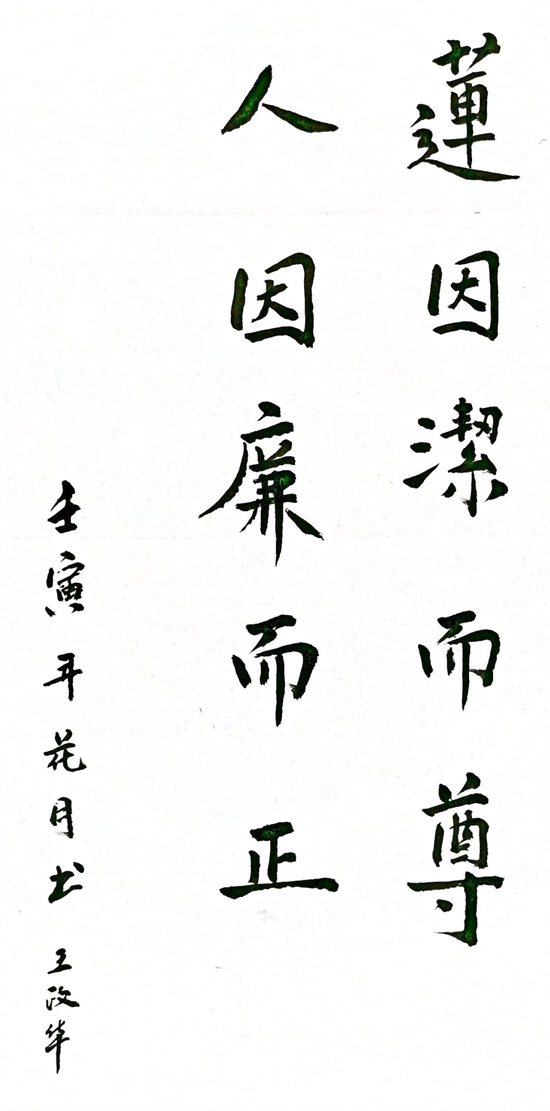 蓮因潔而尊
人因廉而正
壬寅年花月书 王政华